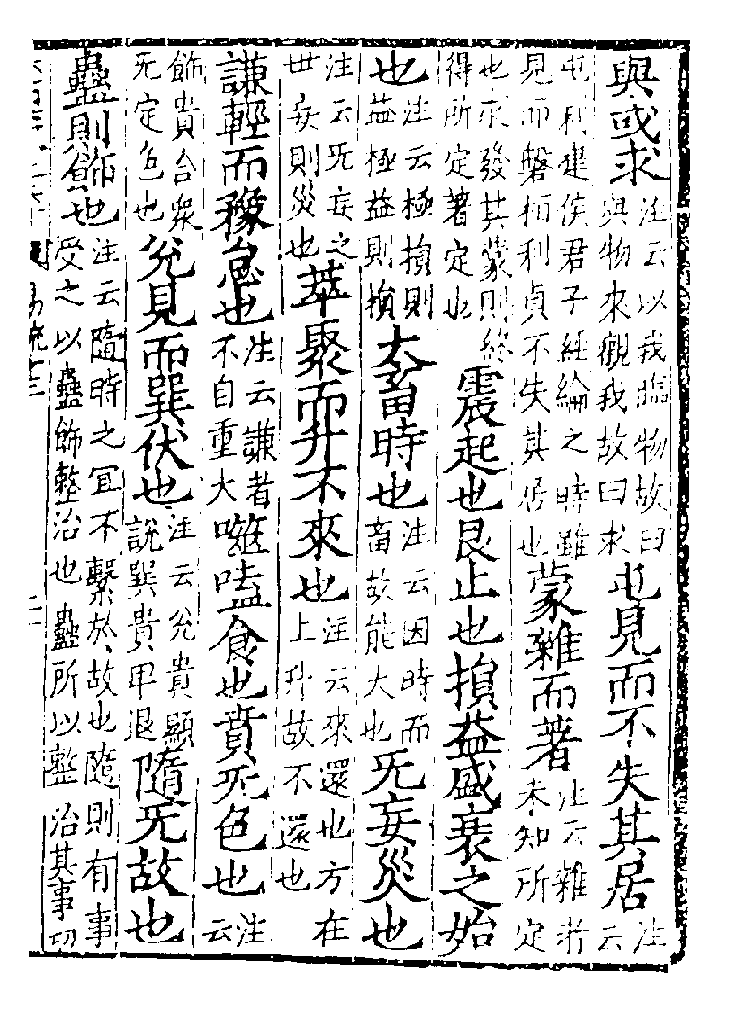 與或求注云以我臨物故曰與物來觀我故曰求屯見而不失其居注云
屯利建侯君子經綸之時雖見而磐桓利貞不失其居也蒙雜而著注云雜者未知所定
也求發其蒙則終得所定著定也震起也艮止也損益盛衰之始
也注云極損則益極益則損大畜時也注云因時而畜故能大也无妄災也
注云无妄之世妄則災也萃聚而升不來也注云來還也方在上升故不還也
謙輕而豫怠也注云謙者不自重大噬嗑食也賁无色也注云
飾貴合衆无定色也兌見而巽伏也注云兌貴顯說巽貴卑退隨无故也
蠱則飾也注云隨時之宜不繫於故也隨則有事受之以蠱飾整治也蠱所以整治其事